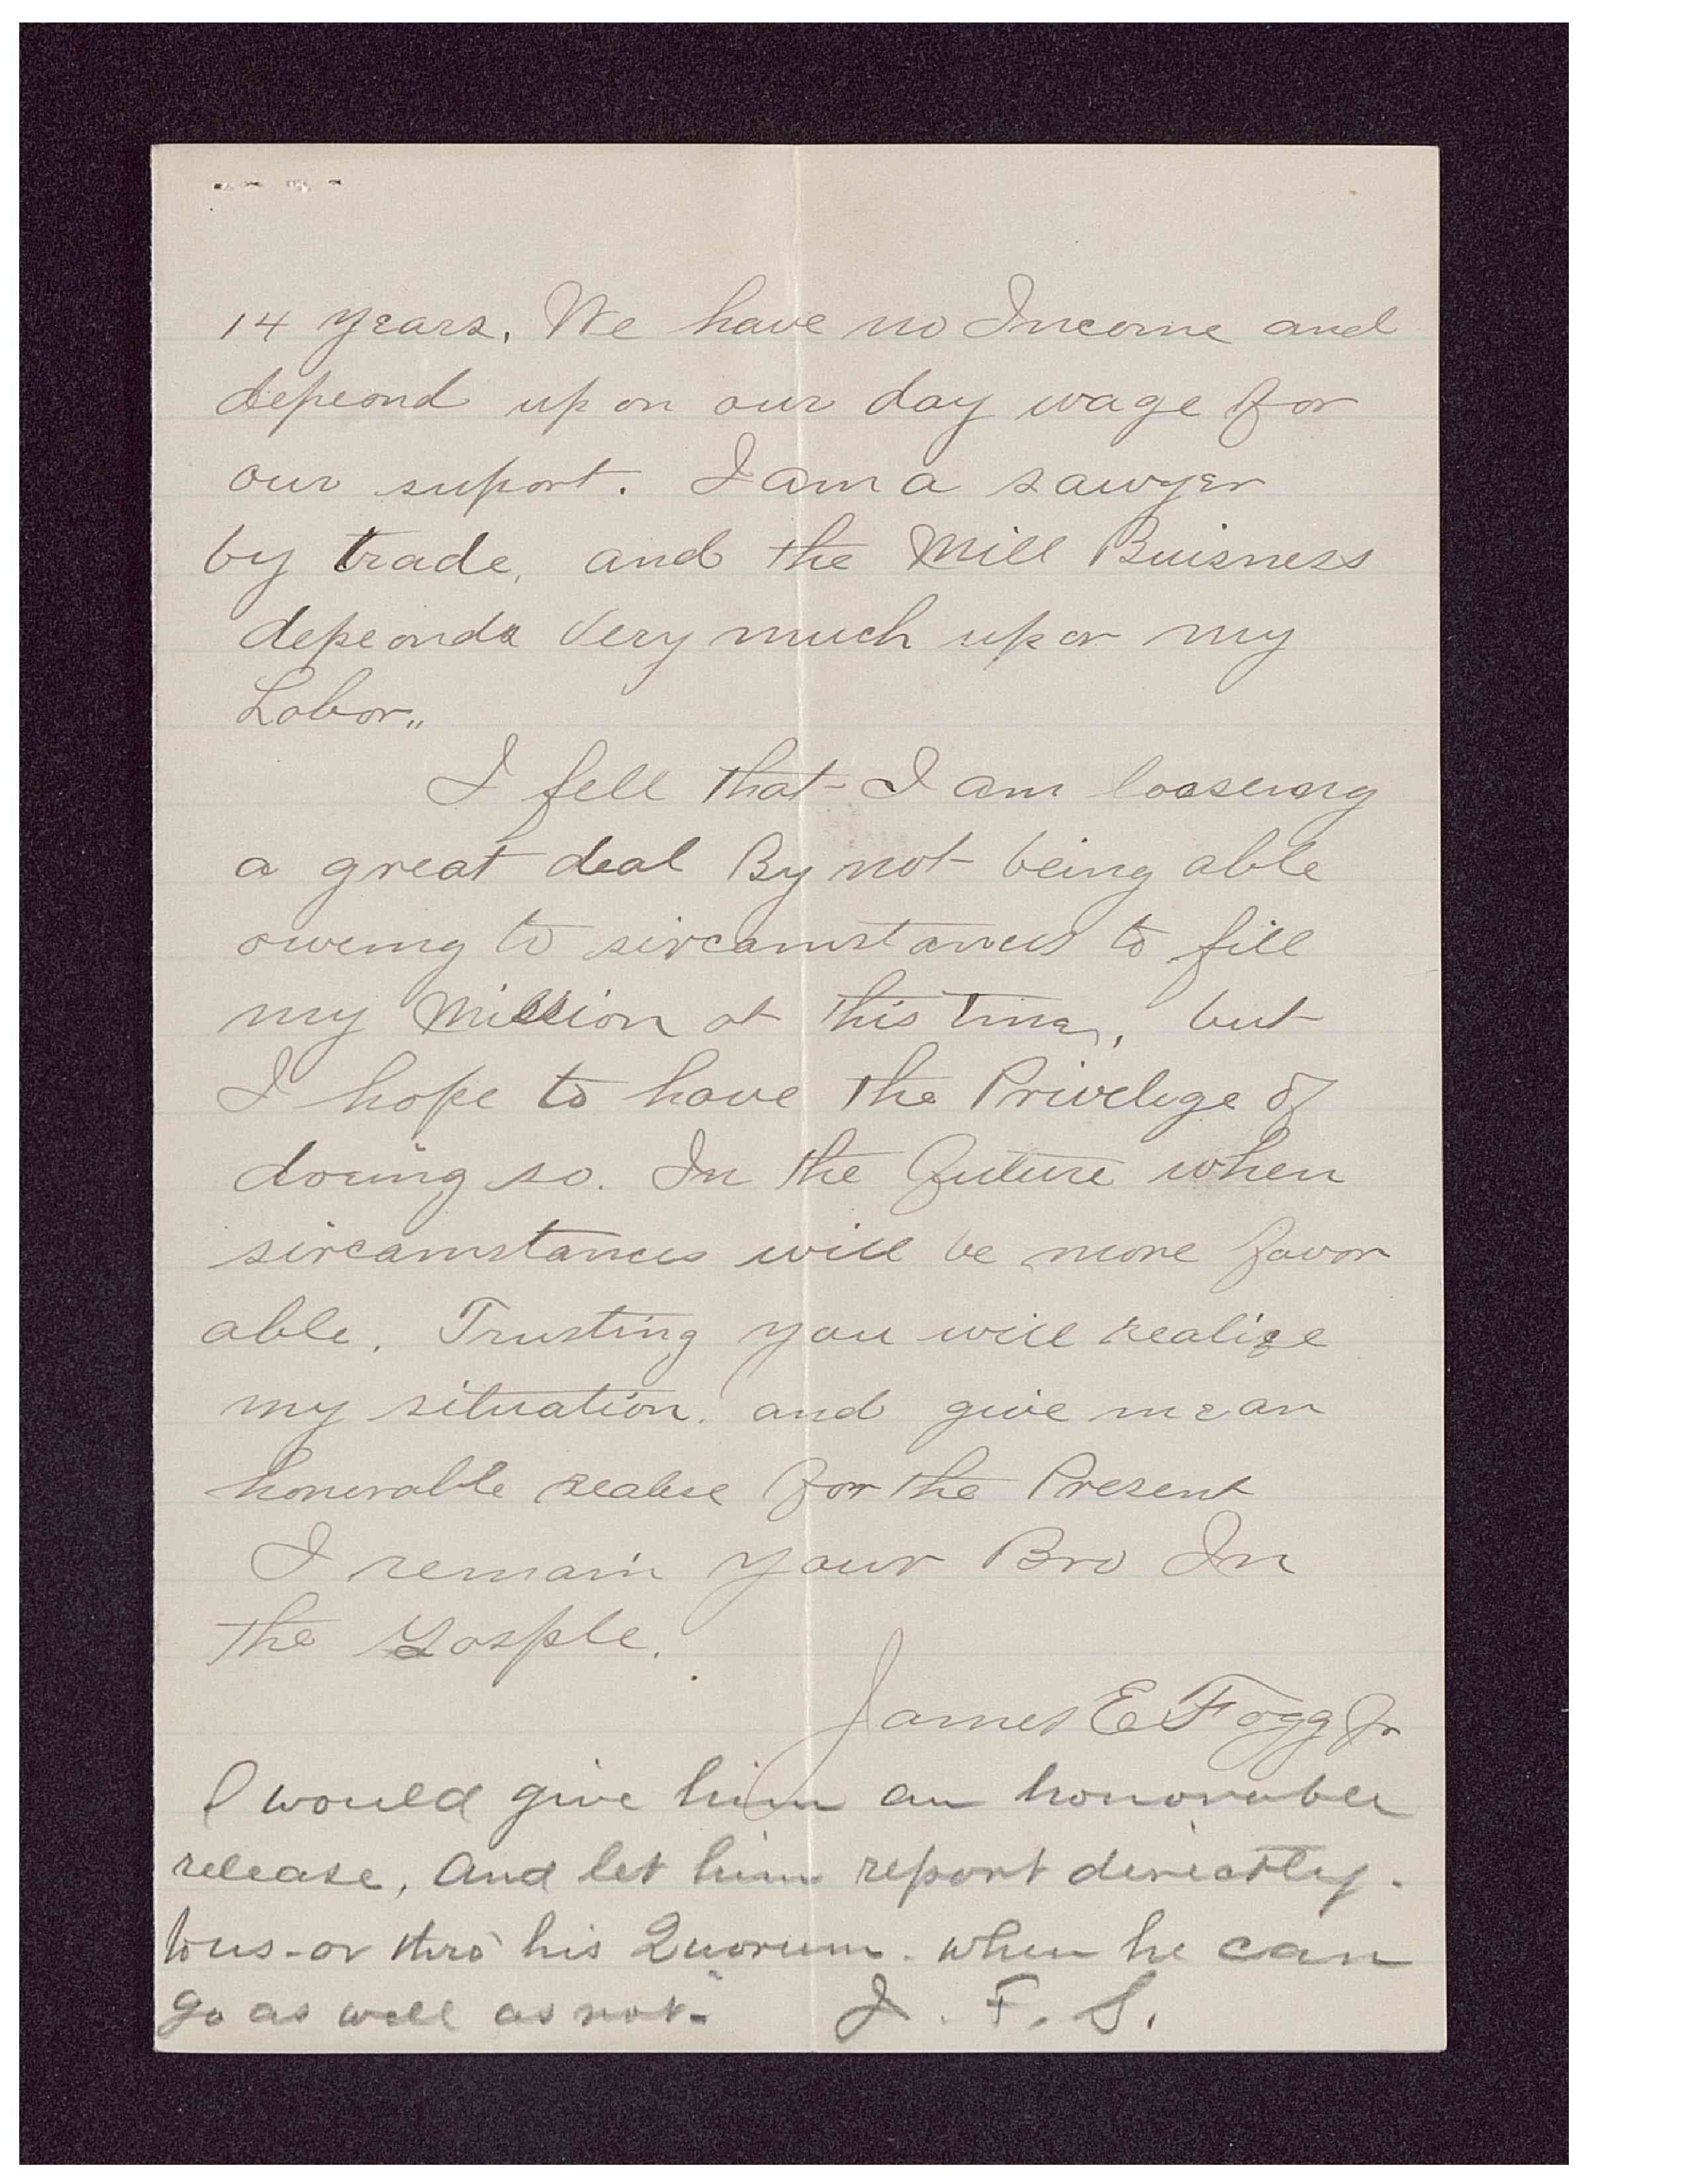 14 years. We have no Income and
depeond up on our day wage for
our suport. I am a sawyer
by trade, and the Mill Buisness
depeonds very much upon my
Labor.,,
I fell that I am looseing
a great deal By not being able
oweing to sircamstances to fill
my Mission at this time, but
I hope to have the Privelige of
doeing so. In the future when
sircamstances will be more favor
able. Trusting you will realize
my situation. and give me an
honorable realise for the Present
I remain your Bro In
the Gosple.
James E Fogg Jr
I would give him an honorable
release, And let him report directly.
to us - or thro his Quorum. when he can
go as well as not. J. F. S.